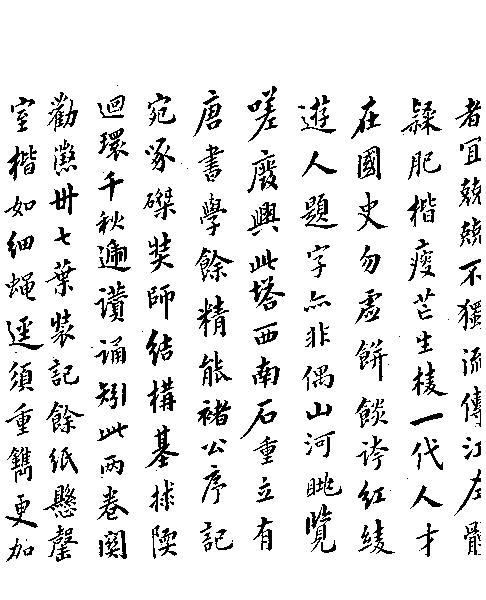 者冝兢兢不獨流傳江左
隸肥楷瘦芒生棱一代人才
在國史勿虛餅餤誇紅綾
遊人題字亦非偶山河眺覽
嗟廢興此塔西南石重立有
唐書學餘精能褚公序記
宛啄磔奘師結構基捄陾
迴環千秋遍讚誦矧此兩卷關
勸懲卅七葉裝記餘紙懸罄
室楷如細蠅逕須重鐫更加